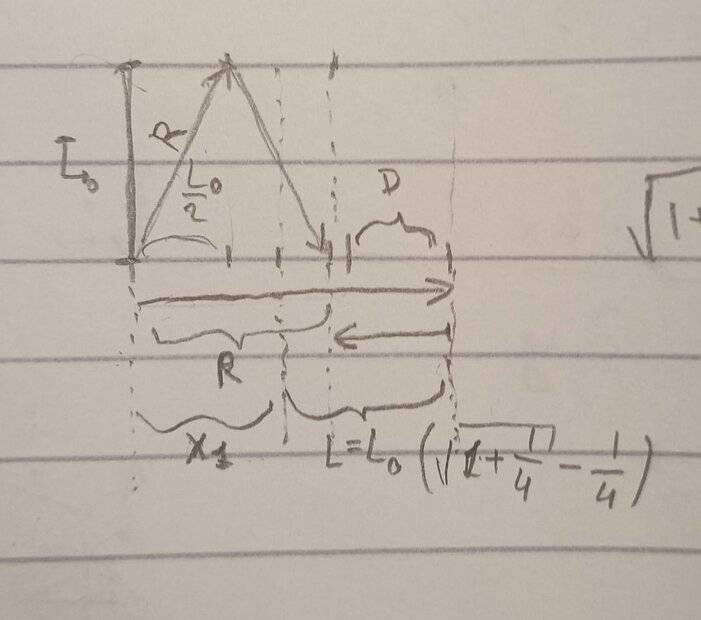 R
L₀
L₀/2
D
√1+
R
X₁
L=L₀(√1+1/4 - 1/4)